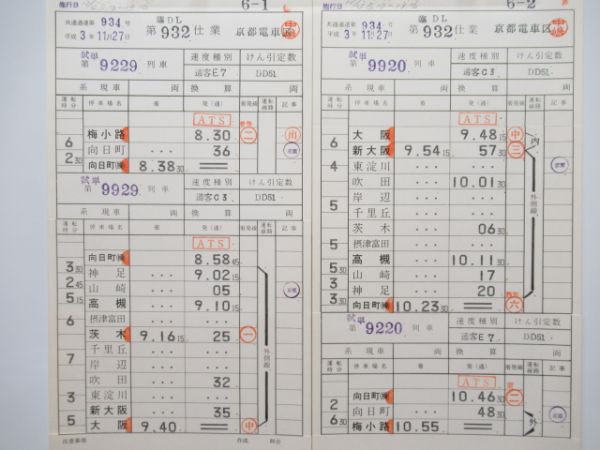 施行日
6-1
共通過達第 934 号
平成 3 年 11月27日
臨DL
第 932 仕業
京都電車区
試単
第 9229 列車
速度種別
けん引定数
通客E7
DD51
系 現車 両 換算
運転時分
停車場名
着
発(通)
着発線
運転線路
記事
ATS
6
梅小路
8.30
二
出
向日町
...
36
2 30
向日町操
8.38 30
試単
第 9929 列車
速度種別
けん引定数
通客C3
DD51
系 現車 両 換算
運転時分
停車場名
着
発(通)
着発線
運転線路
記事
ATS
向日町操
8.58 45
3 30
神足
...
9.02 15
2 45
山崎
...
05
5 15
高槻
...
9.10 15
外側線
6
摂津富田
...
茨木
9.16 15
25
一
7
千里丘
...
岸辺
...
吹田
...
32
3
東淀川
...
新大阪
...
35
5
大阪
9.40
中
注意事項
作成
照合
施行日
6-2
共通過達第 934 号
平成 3 年 11月27日
臨DL
第 932 仕業
京都電車区
試単
第 9920 列車
速度種別
けん引定数
通客C3
DD51
系 現車 両 換算 両
運転時分
停車場名
着
発(通)
着発線
運転線路
記事
ATS
6
大阪
9.48 15
中
内
新大阪
9.54 15
57 30
三
4
東淀川
...
吹田
...
10.01 30
岸辺
...
外側線
千里丘
...
茨木
...
06 30
5
摂津富田
...
高槻
...
10.11 30
5 30
山崎
...
17
3
神足
...
20
3 30
向日町操
10.23 30
六
試単
第 9220 列車
速度種別
けん引定数
通客E7
DD51
系 現車 両 換算 両
運転時分
停車場名
着
発(通)
着発線
運転線路
記事
ATS
向日町操
10.46 30
二
2
向日町
...
48 30
6 30
梅小路
10.55
外